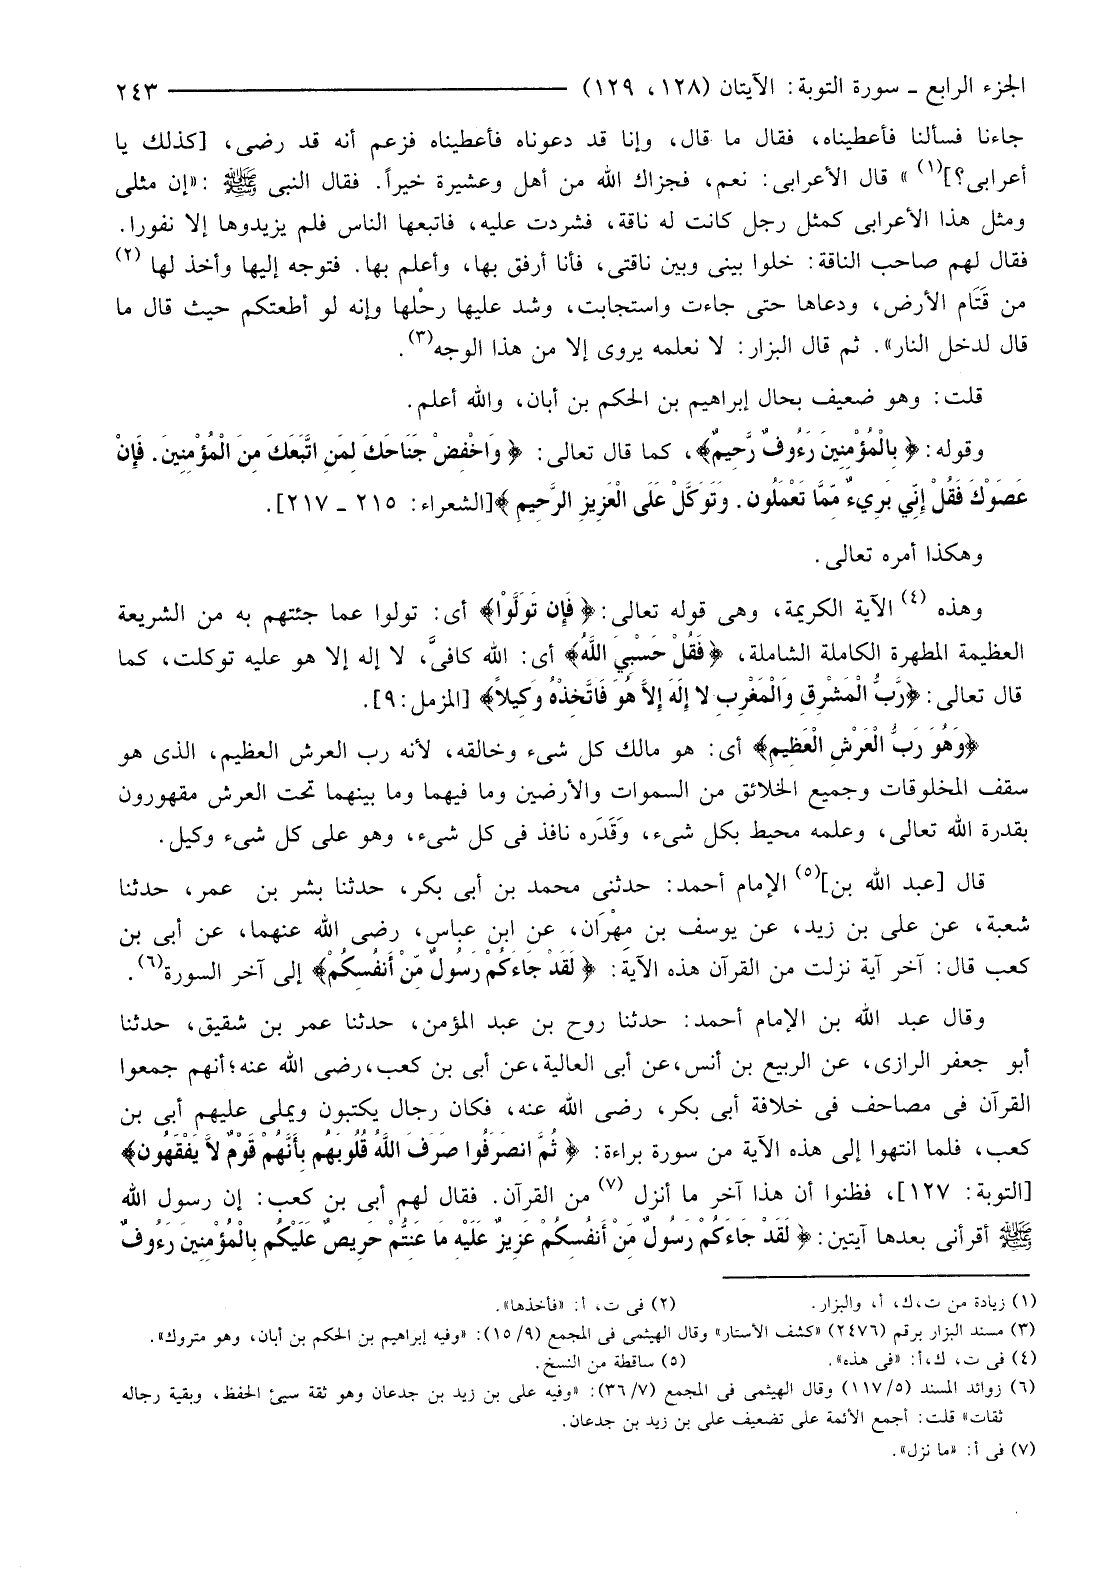 الجزء الرابع ـ سورة التوبة: الآيتان (١٢٨، ١٢٩) ٢٤٣
جاءنا فسألنا فأعطيناه، فقال ما قال، وإنا قد دعوناه فأعطيناه فزعم أنه قد رضى، [كذلك يا
أعرابى؟](١) » قال الأعرابى: نعم، فجزاك الله من أهل وعشيرة خيراً. فقال النبى ﷺ :«إن مثلى
ومثل هذا الأعرابى كمثل رجل كانت له ناقة، فشردت عليه، فاتبعها الناس فلم يزيدوها إلا نفورا.
فقال لهم صاحب الناقة: خلوا بينى وبين ناقتى، فأنا أرفق بها، وأعلم بها. فتوجه إليها وأخذ لها (٢)
من قَتَام الأرض، ودعاها حتى جاءت واستجابت، وشد عليها رحْلها وإنه لو أطعتكم حيث قال ما
قال لدخل النار». ثم قال البزار: لا نعلمه يروى إلا من هذا الوجه(٣).
قلت: وهو ضعيف بحال إبراهيم بن الحكم بن أبان، والله أعلم.
وقوله: ﴿ بِالْمُؤْمِنِينَ رَءُوفٌ رَّحِيمٌ﴾، كما قال تعالى: ﴿ وَاخْفِضْ جَنَاحَكَ لِمَنِ اتَّبَعَكَ مِنَ الْمُؤْمِنِينَ. فَإِنْ
عَصَوْكَ فَقُلْ إِنِّي بَرِيءٌ مِّمَّا تَعْمَلُونَ. وَتَوَكَّلْ عَلَى الْعَزِيزِ الرَّحِيمِ ﴾[الشعراء: ٢١٥ ـ ٢١٧].
وهكذا أمره تعالى.
وهذه (٤) الآية الكريمة، وهى قوله تعالى:﴿ فَإِن تَوَلَّوْا﴾ أى: تولوا عما جئتهم به من الشريعة
العظيمة المطهرة الكاملة الشاملة، ﴿فَقُلْ حَسْبِيَ اللَّهُ﴾ أى: الله كافىَّ، لا إله إلا هو عليه توكلت، كما
قال تعالى:﴿رَّبُّ الْمَشْرِقِ وَالْمَغْرِبِ لا إِلَهَ إِلاَّ هُوَ فَاتَّخِذْهُ وَكِيلاً﴾ [المزمل:٩].
﴿وَهُوَ رَبُّ الْعَرْشِ الْعَظِيمِ﴾ أى: هو مالك كل شىء وخالقه، لأنه رب العرش العظيم، الذى هو
سقف المخلوقات وجميع الخلائق من السموات والأرضين وما فيهما وما بينهما تحت العرش مقهورون
بقدرة الله تعالى، وعلمه محيط بكل شىء، وَقَدَره نافذ فى كل شىء، وهو على كل شىء وكيل.
قال [عبد الله بن](٥) الإمام أحمد: حدثنى محمد بن أبى بكر، حدثنا بشر بن عمر، حدثنا
شعبة، عن على بن زيد، عن يوسف بن مِهْرَان، عن ابن عباس، رضى الله عنهما، عن أبى بن
كعب قال: آخر آية نزلت من القرآن هذه الآية: ﴿ لَقَدْ جَاءَكُمْ رَسُولٌ مِّنْ أَنفُسِكُمْ﴾ إلى آخر السورة(٦).
وقال عبد الله بن الإمام أحمد: حدثنا روح بن عبد المؤمن، حدثنا عمر بن شقيق، حدثنا
أبو جعفر الرازى، عن الربيع بن أنس،عن أبى العالية،عن أبى بن كعب،رضى الله عنه؛أنهم جمعوا
القرآن فى مصاحف فى خلافة أبى بكر، رضى الله عنه، فكان رجال يكتبون ويملى عليهم أبى بن
كعب، فلما انتهوا إلى هذه الآية من سورة براءة: ﴿ ثُمَّ انصَرَفُوا صَرَفَ اللَّهُ قُلُوبَهُم بِأَنَّهُمْ قَوْمٌ لاَّ يَفْقَهُونَ﴾
[التوبة: ١٢٧]، فظنوا أن هذا آخر ما أنزل (٧) من القرآن. فقال لهم أبى بن كعب: إن رسول الله
ﷺ أقرأنى بعدها آيتين: ﴿ لَقَدْ جَاءَكُمْ رَسُولٌ مِّنْ أَنفُسِكُمْ عَزِيزٌ عَلَيْهِ مَا عَنِتُّمْ حَرِيصٌ عَلَيْكُم بِالْمُؤْمِنِينَ رَءُوفٌ
(١) زيادة من ت،ك، أ، والبزار. (٢) فى ت، أ: «فأخذها».
(٣) مسند البزار برقم (٢٤٧٦) «كشف الأستار» وقال الهيثمى فى المجمع (١٥/٩): «وفيه إبراهيم بن الحكم بن أبان، وهو متروك».
(٤) فى ت، ك،أ: «فى هذه». (٥) ساقطة من النسخ.
(٦) زوائد المسند (١١٧/٥) وقال الهيثمى فى المجمع (٣٦/٧): «وفيه على بن زيد بن جدعان وهو ثقة سيئ الحفظ، وبقية رجاله
ثقات» قلت: أجمع الأئمة على تضعيف على بن زيد بن جدعان.
(٧) فى أ: «ما نزل».